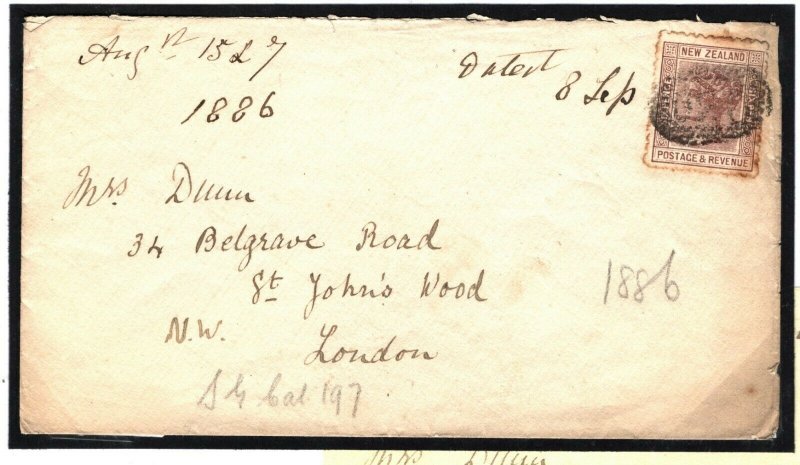 Augst 15 & 7
1886
Dated 8 Sep
NEW ZEALAND
POSTAGE & REVENUE
Mrs Dunn
34 Belgrave Road
St John's Wood
N.W.
London
1886
S G Cat 197
Mrs Dunn